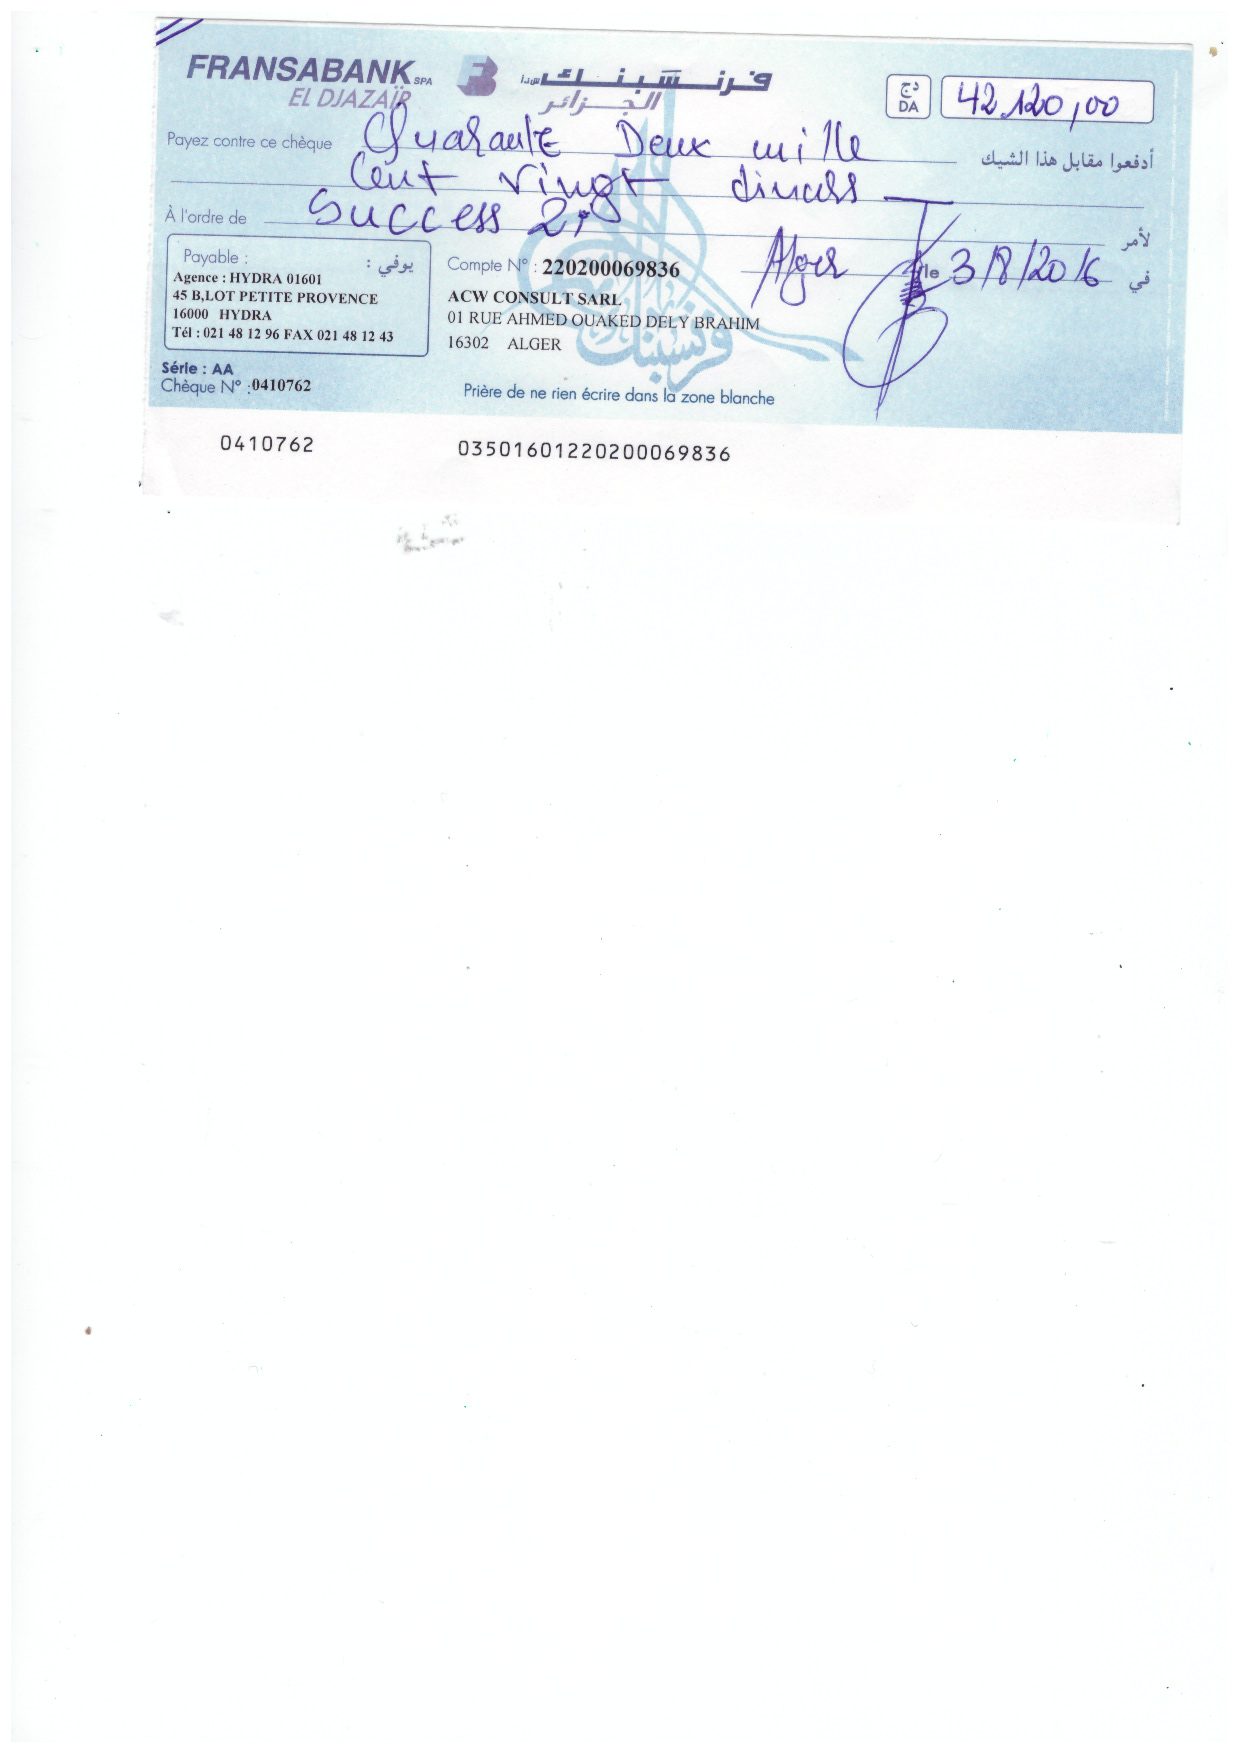 FRANSABANK SPA فرنسبنك ش.ذ.أ
EL DJAZAÏR الجزائر
دج DA 42.120,00
Payez contre ce chèque Quarante Deux mille أدفعوا مقابل هذا الشيك
Cent vingt dinars
À l'ordre de Success 2, لأمر
Payable : يوفي :
Agence : HYDRA 01601
45 B,LOT PETITE PROVENCE
16000 HYDRA
Tél : 021 48 12 96 FAX 021 48 12 43
Compte N° : 220200069836
ACW CONSULT SARL
01 RUE AHMED OUAKED DELY BRAHIM
16302 ALGER
Alger le 3/8/2016 في
Série : AA
Chèque N° : 0410762
Prière de ne rien écrire dans la zone blanche
0410762 03501601220200069836